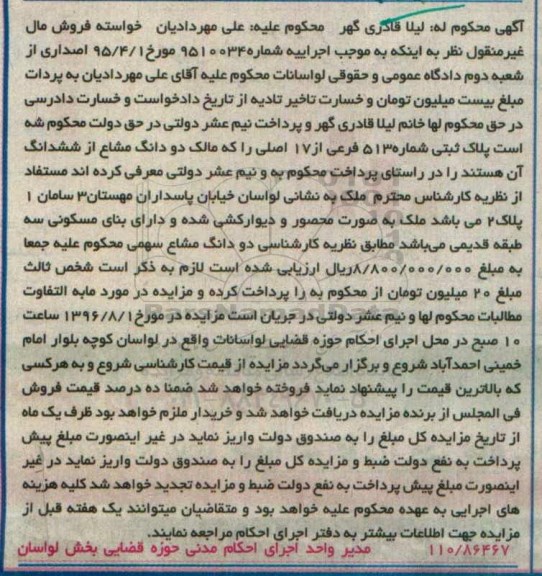 آگهی محکوم له: لیلا قادری گهر   محکوم علیه: علی مهردادیان   خواسته فروش مال
غیرمنقول نظر به اینکه به موجب اجراییه شماره۹۵۱۰۰۳۴ مورخ۹۵/۴/۱ اصداری از
شعبه دوم دادگاه عمومی و حقوقی لواسانات محکوم علیه آقای علی مهردادیان به پردات
مبلغ بیست میلیون تومان و خسارت تاخیر تادیه از تاریخ دادخواست و خسارت دادرسی
در حق محکوم لها خانم لیلا قادری گهر و پرداخت نیم عشر دولتی در حق دولت محکوم شه
است پلاک ثبتی شماره۵۱۳ فرعی از۱۷ اصلی را که مالک دو دانگ مشاع از ششدانگ
آن هستند را در راستای پرداخت محکوم به و نیم عشر دولتی معرفی کرده اند مستفاد
از نظریه کارشناس محترم  ملک به نشانی لواسان خیابان پاسداران مهستان۳ سامان ۱
پلاک۲ می باشد ملک به صورت محصور و دیوارکشی شده و دارای بنای مسکونی سه
طبقه قدیمی می‌باشد مطابق نظریه کارشناسی دو دانگ مشاع سهمی محکوم علیه جمعا
به مبلغ ۸/۸۰۰/۰۰۰/۰۰۰ریال ارزیابی شده است لازم به ذکر است شخص ثالث
مبلغ ۲۰ میلیون تومان از محکوم به را پرداخت کرده و مزایده در مورد مابه التفاوت
مطالبات محکوم لها و نیم عشر دولتی در جریان است مزایده در مورخ۱۳۹۶/۸/۱ ساعت
۱۰ صبح در محل اجرای احکام حوزه قضایی لواسانات واقع در لواسان کوچه بلوار امام
خمینی احمدآباد شروع و برگزار می‌گردد مزایده از قیمت کارشناسی شروع و به هرکسی
که بالاترین قیمت را پیشنهاد نماید فروخته خواهد شد ضمنا ده درصد قیمت فروش
فی المجلس از برنده مزایده دریافت خواهد شد و خریدار ملزم خواهد بود ظرف یک ماه
از تاریخ مزایده کل مبلغ را به صندوق دولت واریز نماید در غیر اینصورت مبلغ پیش
پرداخت به نفع دولت ضبط و مزایده کل مبلغ را به صندوق دولت واریز نماید در غیر
اینصورت مبلغ پیش پرداخت به نفع دولت ضبط و مزایده تجدید خواهد شد کلیه هزینه
های اجرایی به عهده محکوم علیه خواهد بود و متقاضیان میتوانند یک هفته قبل از
مزایده جهت اطلاعات بیشتر به دفتر اجرای احکام مراجعه نمایند.
۱۱۰/۸۶۴۶۷   مدیر واحد اجرای احکام مدنی حوزه قضایی بخش لواسان